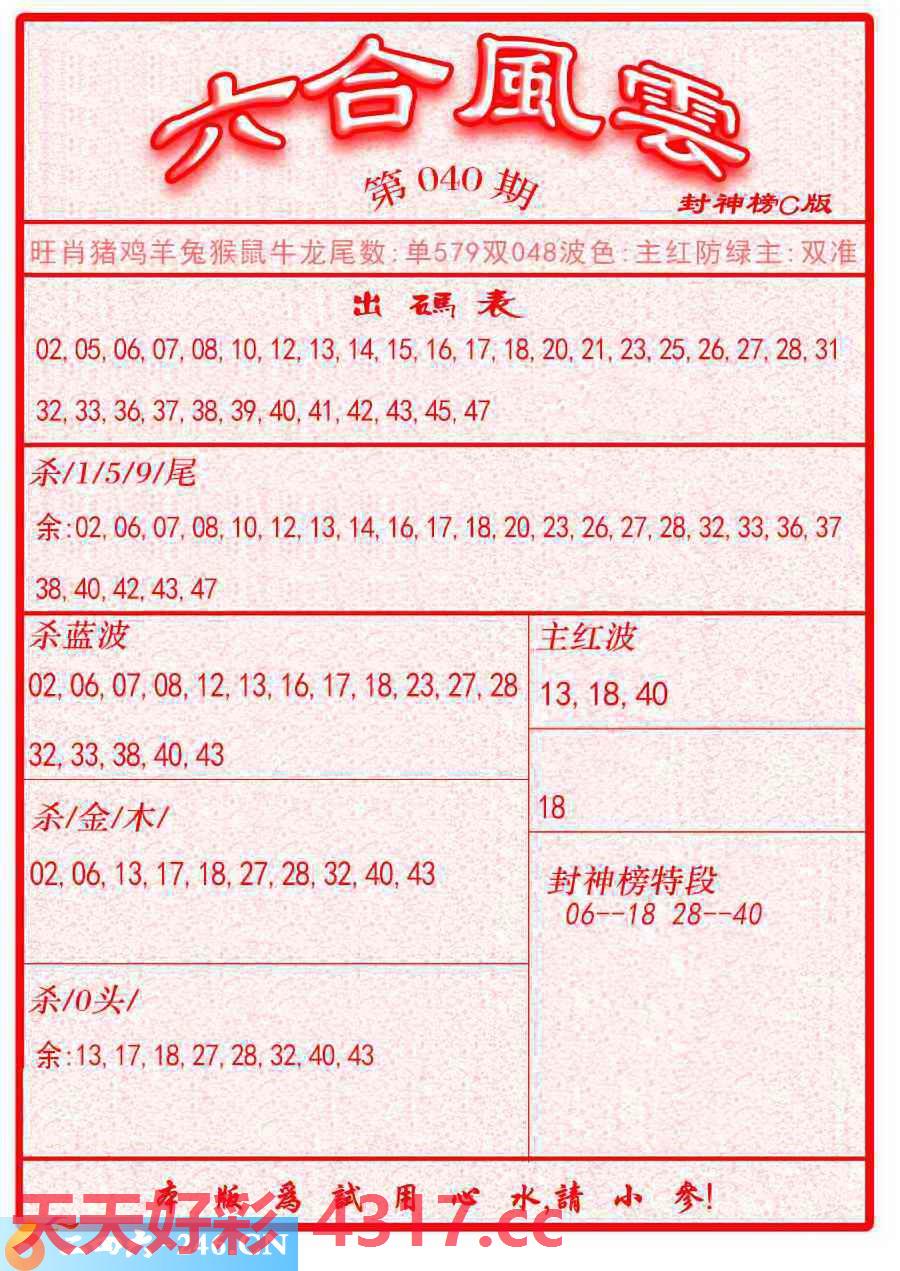 六合風雲
第040期
封神榜C版
旺肖猪鸡羊兔猴鼠牛龙尾数:单579双048波色:主红防绿主:双准
出碼表
02,05,06,07,08,10,12,13,14,15,16,17,18,20,21,23,25,26,27,28,31
32,33,36,37,38,39,40,41,42,43,45,47
杀/1/5/9/尾
余:02,06,07,08,10,12,13,14,16,17,18,20,23,26,27,28,32,33,36,37
38,40,42,43,47
杀蓝波
02,06,07,08,12,13,16,17,18,23,27,28
32,33,38,40,43
主红波
13,18,40
18
杀/金/木/
02,06,13,17,18,27,28,32,40,43
封神榜特段
06--18 28--40
杀/0头/
余:13,17,18,27,28,32,40,43
本版爲試用心水,請小參!
天天好彩 4317.cc
246.CN